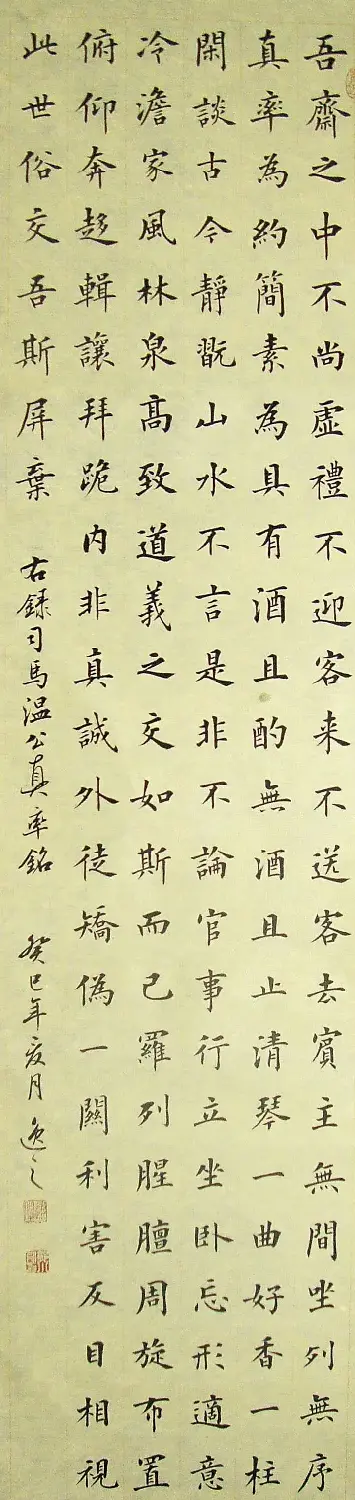 吾齋之中不尚虛禮不迎客来不送客去賓主無間坐列無序
真率為約簡素為具有酒且酌無酒且止清琴一曲好香一柱
閑談古今靜翫山水不言是非不論官事行立坐卧忘形適意
冷澹家風林泉高致道義之交如斯而已羅列腥膻周旋布置
俯仰奔趍輯讓拜跪内非真誠外徒矯偽一關利害反目相視
此世俗交吾斯屏棄 右録司馬温公真率銘 癸巳年亥月 逸之